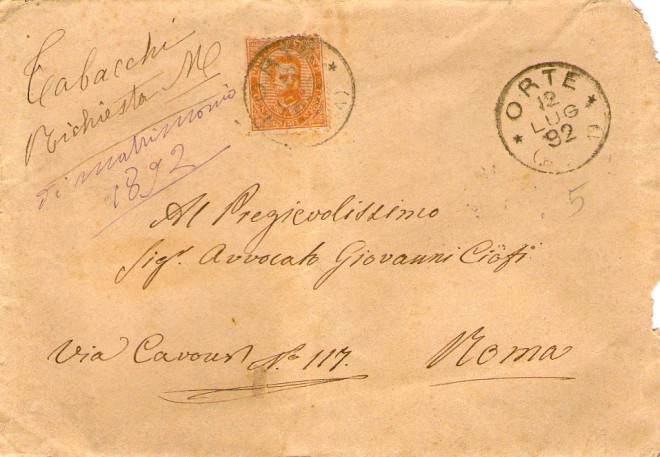 Tabacchi
Richiesta M
di matrimonio
1892
ORTE
12
LUG
92
5
Al Pregievolissimo
Sigr. Avvocato Giovanni Cioffi
Via Cavour No. 117. Roma